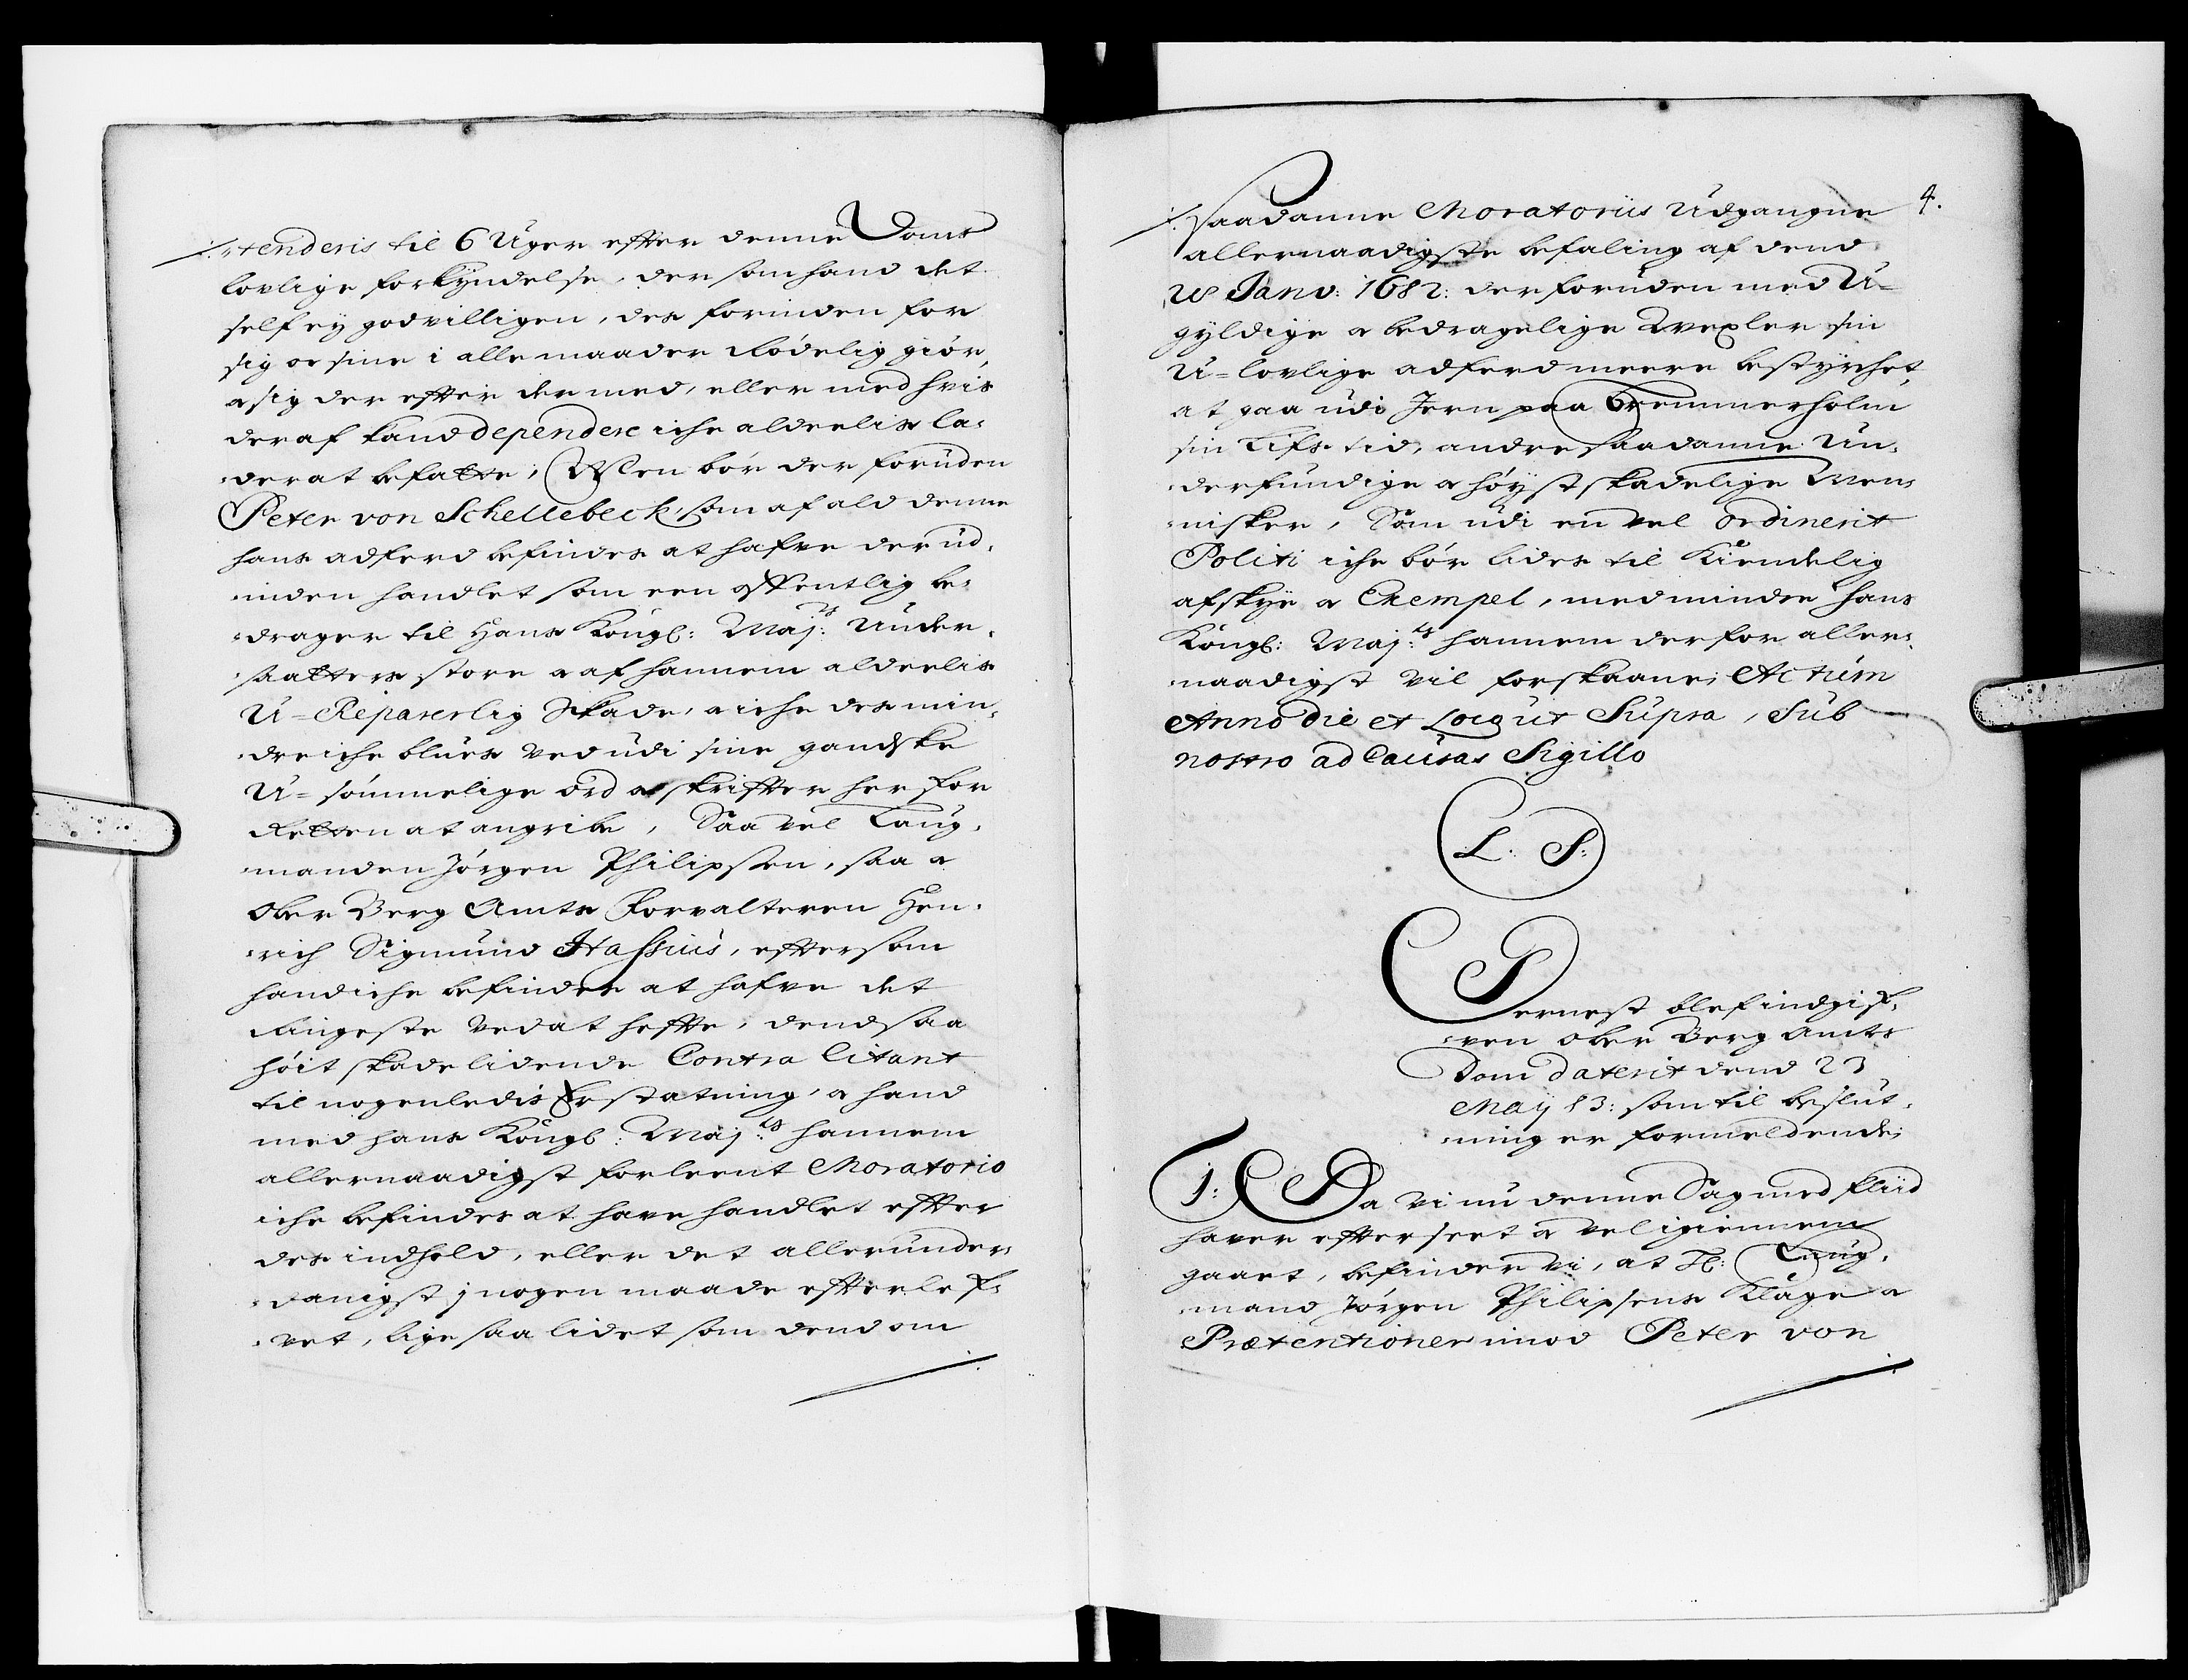 /: stenderis til 6 Uger efter denne Doms
lovlige forkyndelse, der som hand det
self ey godvilligen, des forinden for
sig oc sine i alle maader Rødelig giør,
a sig der efter dermed, eller med hvis
deraf kand dependere iche aldeelis la-
der at befatte; Men bør der foruden
Peter von Schellebeck, som af ald denne
hans adferd befindes at hafve der ud-
inden handlet som een offentlig be-
drager til Hans Kongl: Maj:ts Under-
saatters store a af hannem aldeelis
U=Reparerlig Skade, a iche des min-
dre iche blues ved udi sine gandske
U=sømmelige ord a skrifter her for
Retten at angribe, Saavel Laug-
manden Jørgen Philipsen, saa a
Ober Berg Amts Forvalteren Hen-
rich Sigmund Hassius, eftersom
hand iche befindes at hafve det
ringeste ved at hefte, dend saa
høit skadelidende Contra Citant
til nogenledis Erstatning, a hand
med hans Kongl: Maj:ts hannem
allernaadigst forleent Moratorio
iche befindes at have handlet efter
des indhold, eller det allerunder-
danigst j nogen maade efterlef-
vet, lige saa lidet som dend om
4.
/: saadanne Moratoriis Udgangne
allernaadigste befaling af dend
28 Janv: 1682: der foruden med U-
gyldige a bedragelige Wexler sin
U=lovlige adferd meere bestyrchet,
at gaa udi Jern paa Bremmerholm
sin Lifs tid, andre saadanne Un-
derfundige a høyst skadelige Men-
nisker, Som udi en vel ordinerit
Politi iche bør lides til Kiendelig
afskye a Exempel, med mindre hans
Kongl: Maj:ts hannem derfor aller-
naadigst vil forskaane; Actum
Anno die et Loco ut Supra, Sub
nostro ad Causas Sigillo
L: S:
Dernest blef indgif-
ven Ober Berg Amts
Dom daterit dend 23
Maij 83: som til beslut-
ning er formeldende;
1: Da vi nu denne Sag med fliid
haver efterseet a vel igiennem
gaaet, befinder vi, at Hr: Laug-
mand Jørgen Philipsens Klage a
Prætentioner imod Peter von